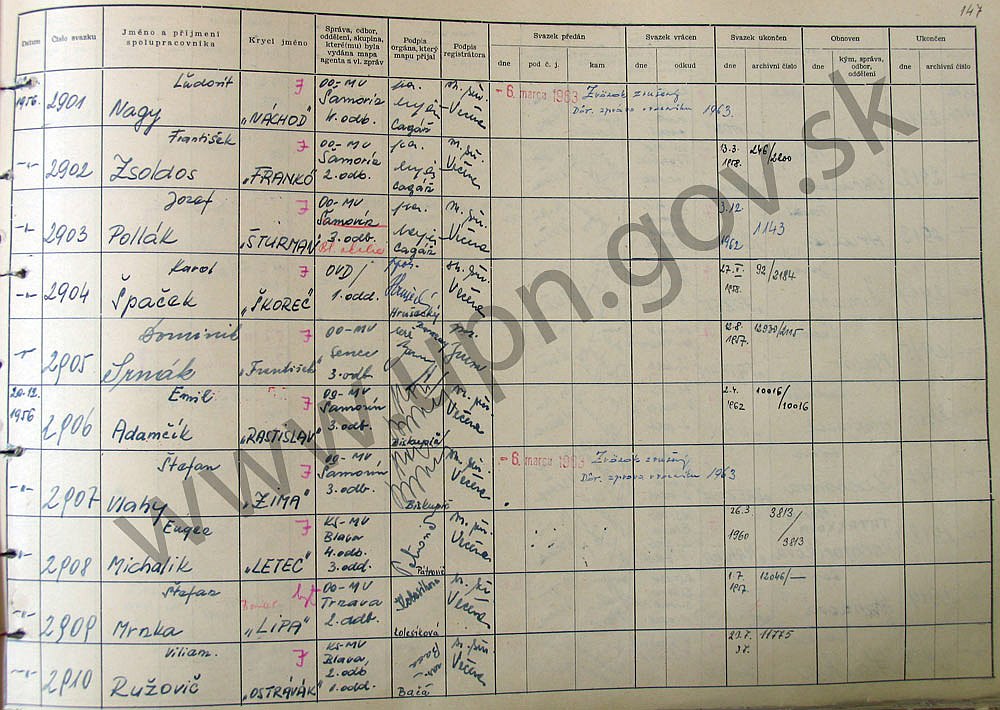 147
Datum
Číslo svazku
Jméno a příjmení spolupracovníka
Krycí jméno
Správa, odbor, oddělení, skupina, které(mu) byla vydána mapa agenta a vl. zpráv
Podpis orgána, který mapu přijal
Podpis registrátora
Svazek předán
dne
pod č. j.
kam
Svazek vrácen
dne
odkud
Svazek ukončen
dne
archivní číslo
Obnoven
dne
kým, správa, odbor, oddělení
Ukončen
dne
archivní číslo
1956.
2901
Ľudovít
Nagy
„NÁCHOD"
OO-MV
Šamorín
4. odb.
Cagáň
Večera
- 6. marca 1963
Zväzok zrušený
1963.
2902
František
Zsoldos
„FRANKO"
OO-MV
Šamorín
2. odb.
Cagáň
Večera
13.3.
1958.
246/2200
2903
Jozef
Pollák
„ŠTURMAN"
OO-MV
Šamorín
3. odb.
Cagáň
Večera
3.12.
1962
1143
2904
Karol
Špaček
„ŠKOREC"
OVD/
1. odd.
Hrušecký
Večera
27.
1958.
92/2184
2905
Dominik
Srnák
„František"
OO-MV
Senec
3. odb.
12.8.
1957.
20.12.
1956
2906
Emil
Adamčík
„RASTISLAV"
OO-MV
Šamorín
3. odb.
Večera
2.4.
1962
10016/
10016
2907
Štefan
Vlahy
„ZIMA"
OO-MV
Šamorín
3. odb.
Biskupič
Večera
- 6. marca 1963
Zväzok zrušený
1963
2908
Eugen
Michalík
„LETEC"
KS-MV
Blava
4. odb.
3. odd.
Petrovič
Večera
26.3
1960
3813/
3813
2909
Štefan
Mrnka
„LIPA"
OO-MV
Trnava
2. odb.
Kolesíková
Večera
1.7.
1957.
12046/—
2910
Viliam
Ružovič
„OSTRAVÁK"
KS-MV
Blava,
2. odb
1. odd.
Bača
Večera
11775
www.upn.gov.sk